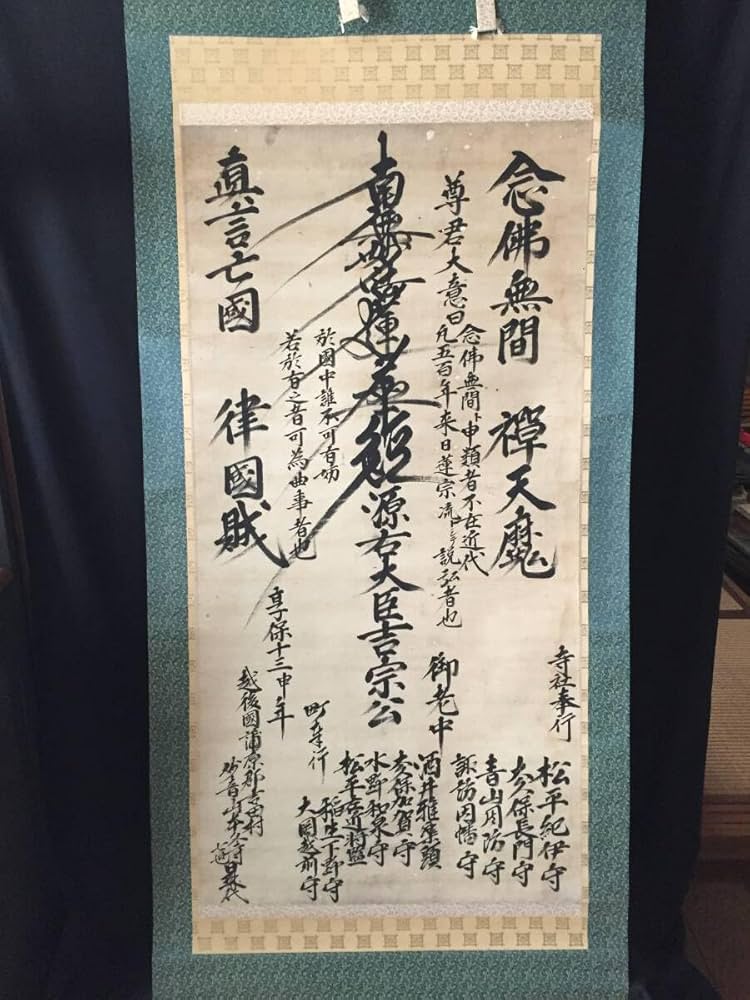 念佛無間　禪天魔
尊君大意曰
念佛無間ト申類者不在近代
凡五百年来日蓮宗流ニ而説弘者也
南無妙法蓮華経
源右大臣吉宗公
於國中誰不可有妨
若於有之者可為曲事者也
真言亡國　律國賊
享保十三申年
寺社奉行
松平紀伊守
太久保長門守
青山因防守
諏訪因幡守
御老中
酒井雅楽頭
太久保加賀守
水野和泉守
松平左近将監
町奉行
稲生下野守
大岡越前守
越後國蒲原郡